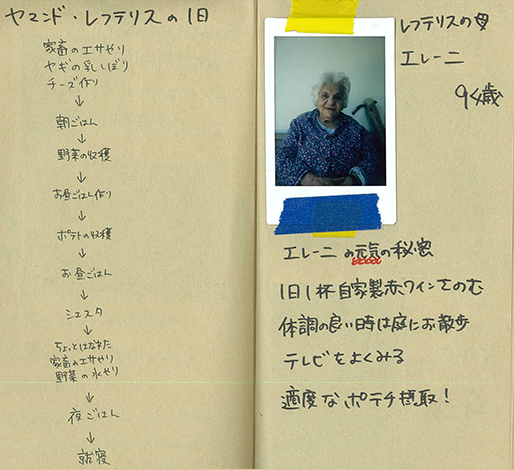 ヤマンド・レフテリスの1日
家畜のエサやり
ヤギの乳しぼり
チーズ作り
↓
朝ごはん
↓
野菜の収穫
↓
お昼ごはん作り
↓
ポテトの収穫
↓
お昼ごはん
↓
シエスタ
↓
ちょっとはなれた
家畜のエサやり
野菜の水やり
↓
夜ごはん
↓
就寝
レフテリスの母
エレーニ
94歳
エレーニの元気の秘密
1日1杯自家製赤ワインをのむ
体調の良い時は庭にお散歩
テレビをよくみる
適度なポテチ摂取!